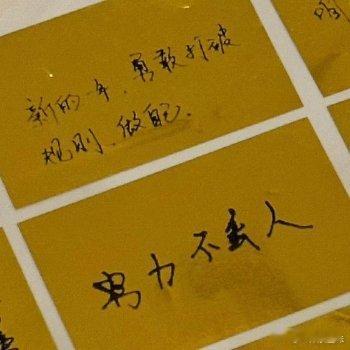 新的一年，勇敢打破
规则、做自己.
努力不丢人